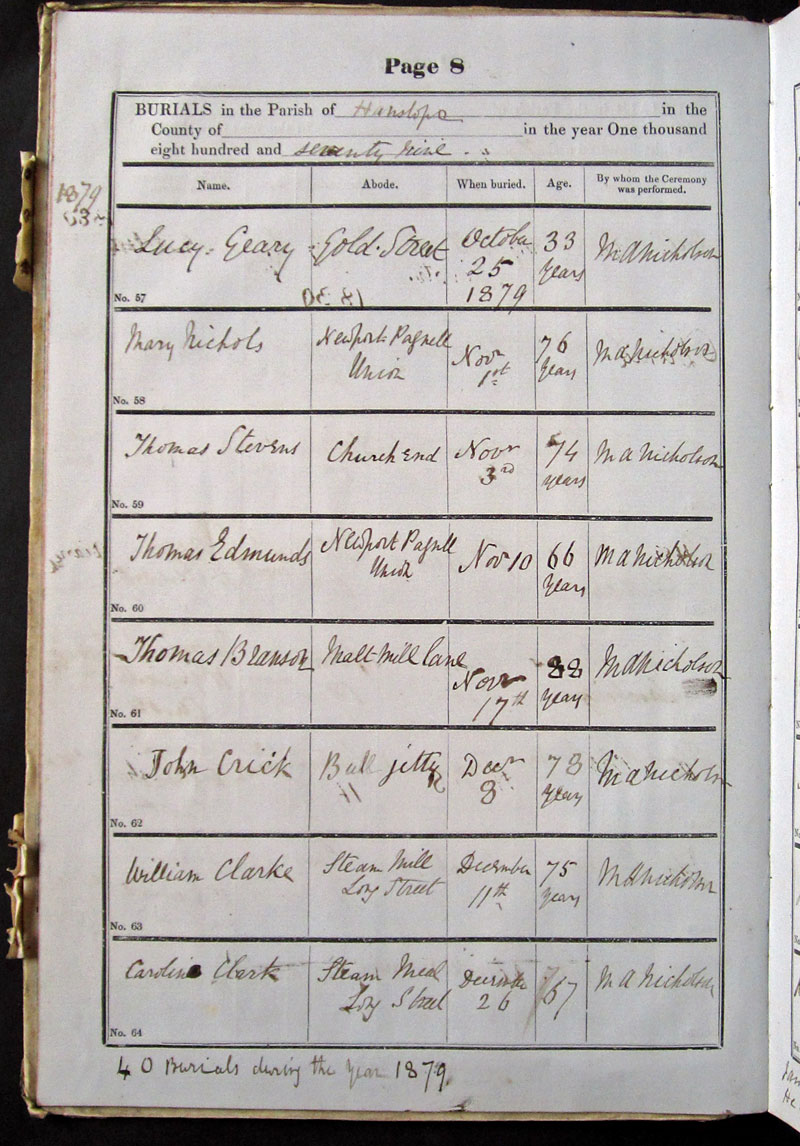 Page 8
BURIALS in the Parish of Hanslope in the
County of in the year One thousand
eight hundred and seventy nine
Name. Abode. When buried. Age. By whom the Ceremony
was performed.
1879
Lucy Geary Gold Street October 33 M A Nicholson
25 Years
1879
No. 57
Mary Nichols Newport Pagnell Novr 76 M A Nicholson
Union 1st Years
No. 58
Thomas Stevens Church End Novr 74 M A Nicholson
3rd years
No. 59
Thomas Edmunds Newport Pagnell Nov 10 66 M A Nicholson
Union Years
No. 60
Thomas Branson Malt Mill lane Novr 88 M A Nicholson
17th years
No. 61
John Crick Bull jetty Decr 78 M A Nicholson
8 Years
No. 62
William Clarke Steam Mill December 75 M A Nicholson
Long Street 11th Years
No. 63
Caroline Clark Steam Meal December 67 M A Nicholson
Long Street 26
No. 64
40 Burials during the Year 1879